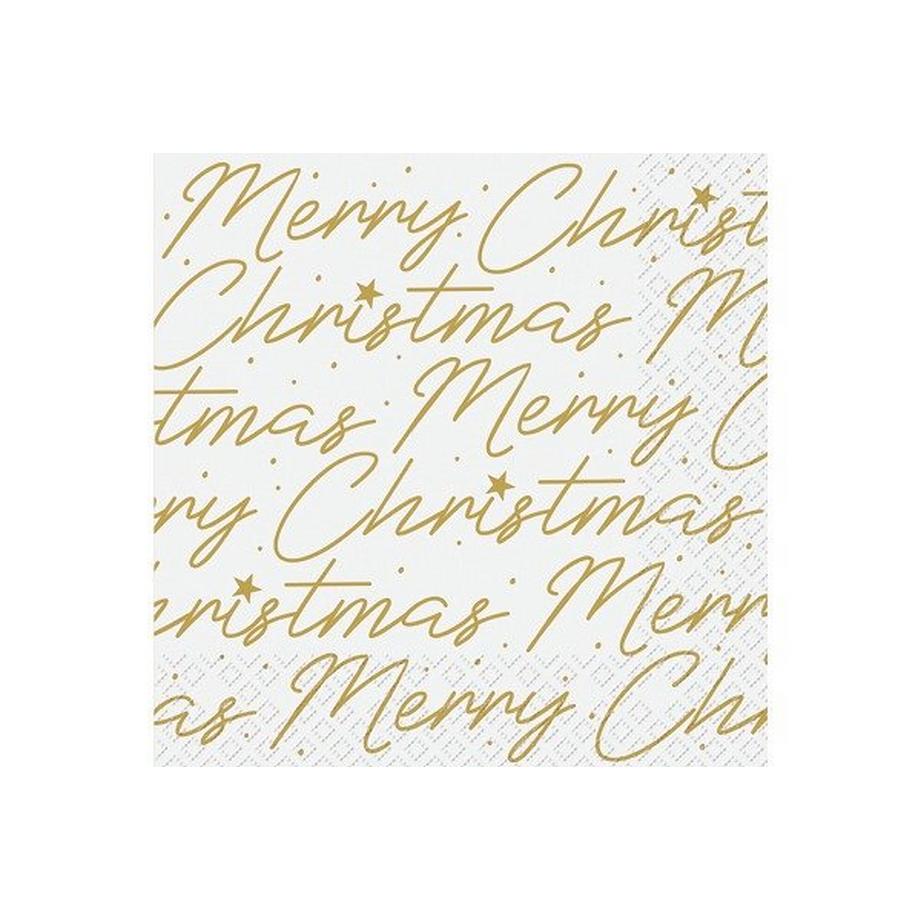 Merry Christ
Christmas M
tmas Merry C
ry Christmas
hristmas Merr
as Merry Chr